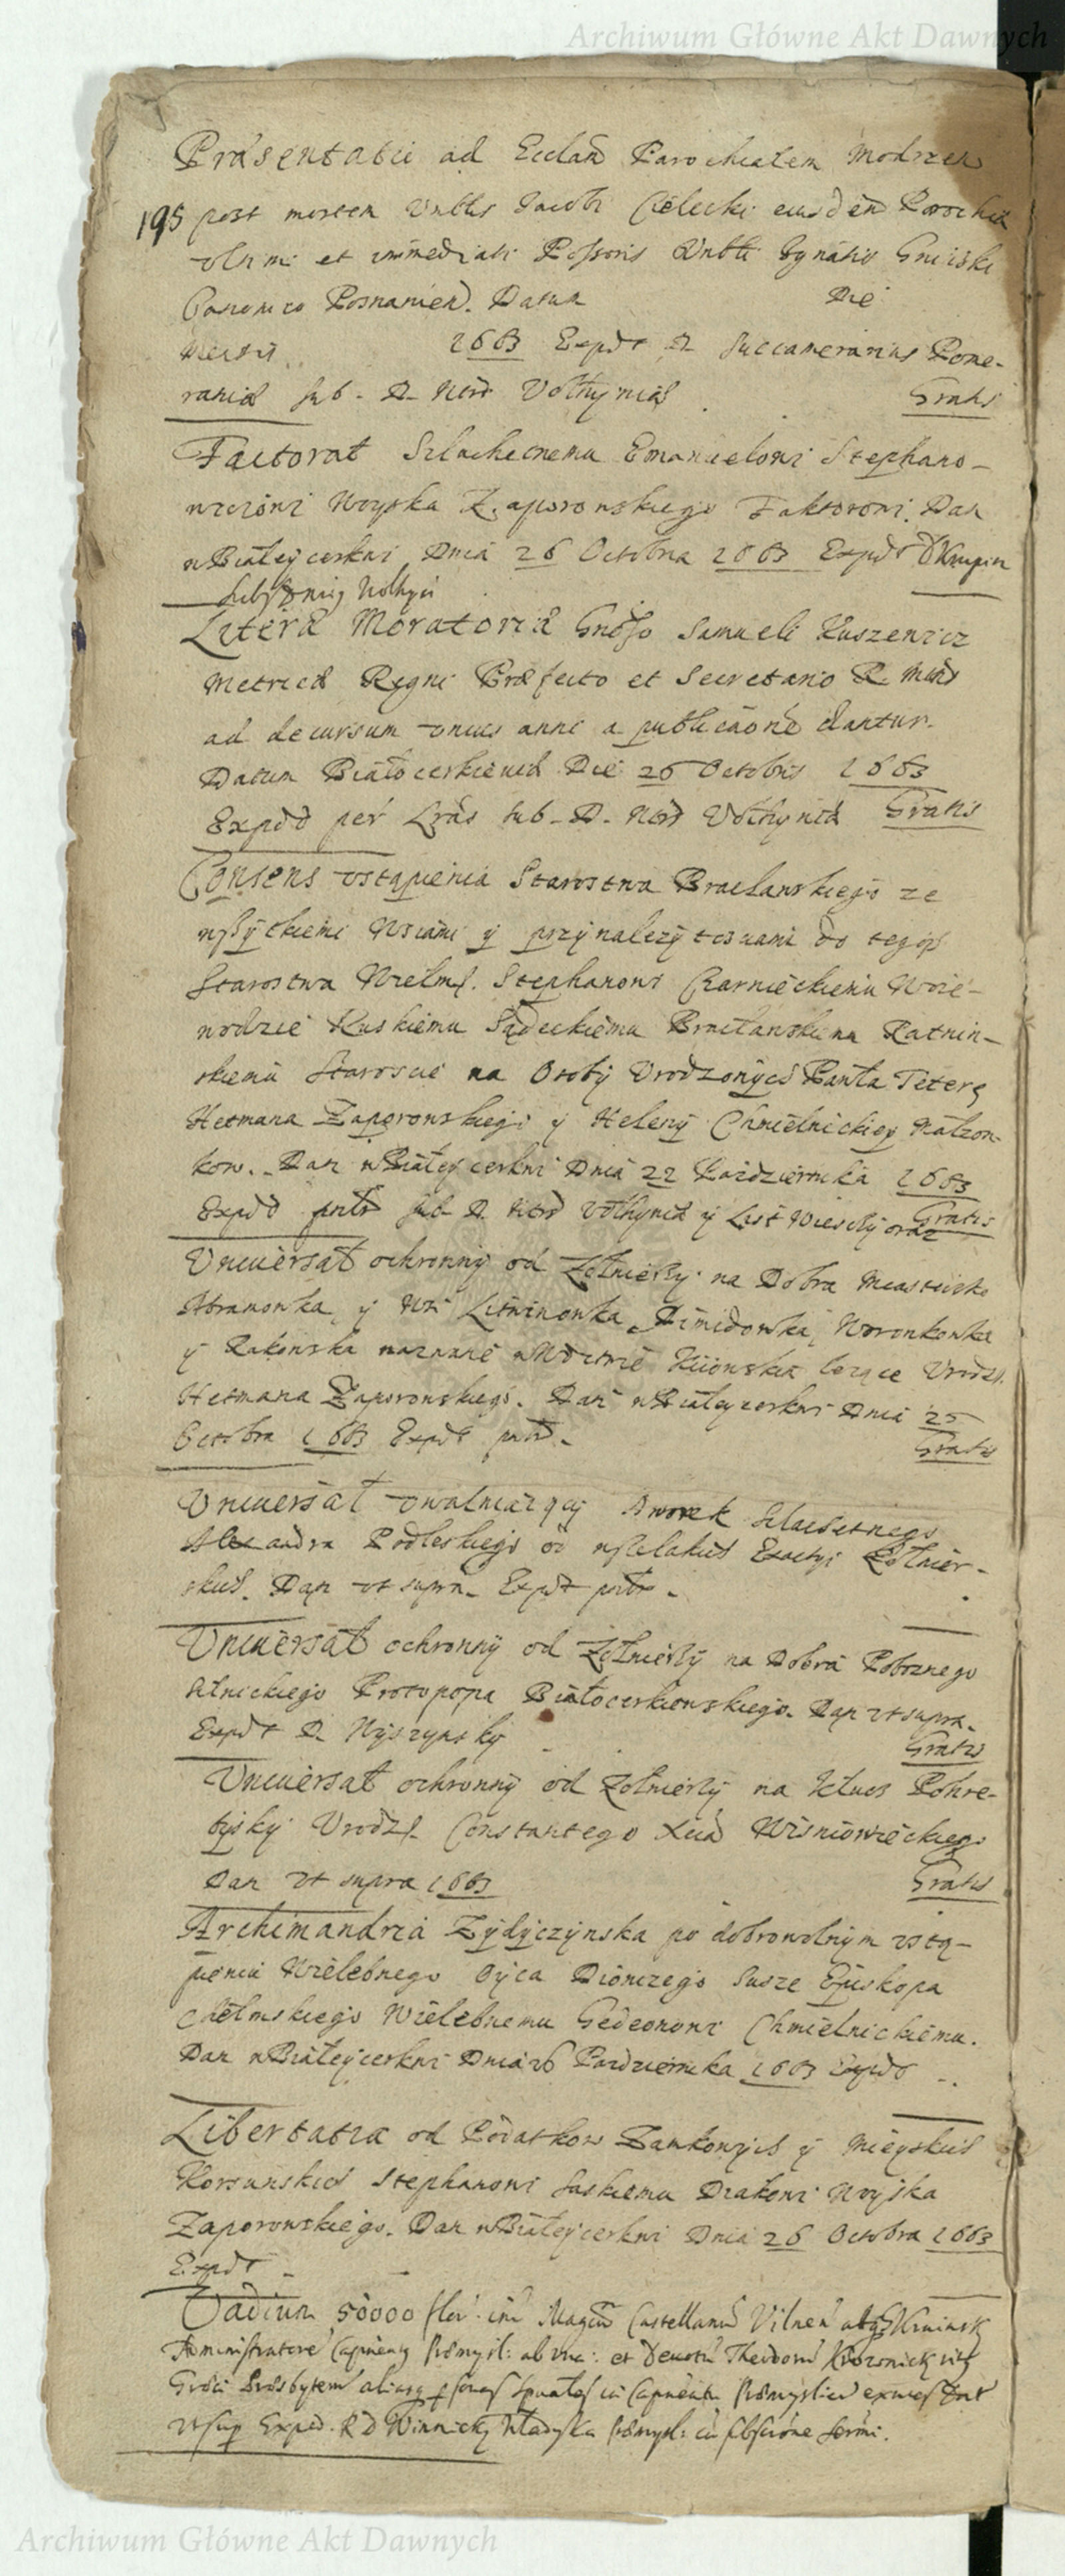 Archiwum Główne Akt Dawnych
Præsentatio ad Ecclam Parochialem Modrzew
195 post mortem Vnblis Jacobi Cielecki eiusdem Parochiæ
vltimi et immediati Possoris Vnbli Ignatio Gninski
Canonico Posnanien. Datum Die
Mensis 1663 Expdt D. Succamerarius Pome-
raniæ sub D. Notr Volhyniæ Gratis
Factorat Szlachetnemu Emanuelowi Stephano-
wiczowi Woyska Zaporowskiego Faktorowi. Dan
w Białeycerkwi Dnia 26 Octobra 1663 Expdt
Literæ Moratoriæ Gnoso Samueli Kuszewicz
Metricæ Regni Præfecto et Secretario R. Mtis
ad decursum vnius anni a publicaone dantur.
Datum Białocerkiewiæ Die 26 Octobris 1663
Expdd per Lras sub D. Notr Volhyniæ Gratis
Consens vstąpienia Starostwa Bracławskiego ze
wszytkiemi Wsiami y przynależytosciami do tegosz
Starostwa Wielm. Stephanowi Czarnieckiemu Woie-
wodzie Ruskiemu Sądeckiemu Bracławskiemu Ratnin-
skiemu Staroscie na Osoby Vrodzonych Pawła Tetery
Hetmana Zaporowskiego y Heleny Chmielnickiey Małzon-
kow. Dan w Białey cerkwi Dnia 22 Pazdziernika 1663
Expdd sub D. Notr Volhyniæ y List Wiesczy oraz Gratis
Vniuersał ochronny od Zołnierzy na Dobra Miasteczko
Abramowka y Wsi Litwinowka Dimidowka, Woronkowka
y Rakowska nazwane w Wdztwie Kiiowskim lezące Vrodz.
Hetmana Zaporowskiego. Dan w Białeycerkwi Dnia 25
Octobra 1663 Expdt Gratis
Vniuersał vwalniaiący Dworek Szlachetnego
Alexandra Podleskiego od wszelakich Exactyi Zołnier-
skich. Dan vt supra. Expdt
Vniuersał ochronny od Zołnierzy na Dobra Poboznego
Protopopa Białocerkiewskiego. Dan vt supra.
Expdt D. Wyszynsky Gratis
Vniuersał ochronny od Zołnierzy na Klucz Pohre-
byski Vrodz. Constantego Xcia Wisniowieckiego
Dan vt supra 1663 Gratis
Archimandria Zydyczynska po dobrowolnym vstą-
pieniu Wielebnego Oyca Dionizego Susze Episkopa
Chełmskiego Wielebnemu Gedeonowi Chmielnickiemu.
Dan w Białeycerkwi Dnia 26 Pazdziernika 1663 Expdt
Libertatia od Podatkow Zamkowych y Mieyskich
Korsunskich Stephanowi Saskiemu Diakowi Woyska
Zaporowskiego. Dan w Białeycerkwi Dnia 26 Octobra 1663
Expdt
Vadium 50000 flor. int. Magcum Castellanum Vilnen atq
Administratore Præmysl: ab vna: et Deuotum Theodorum
Græci
vt sup Exped. R D Winnicky Władyka Præmysl:
Archiwum Główne Akt Dawnych